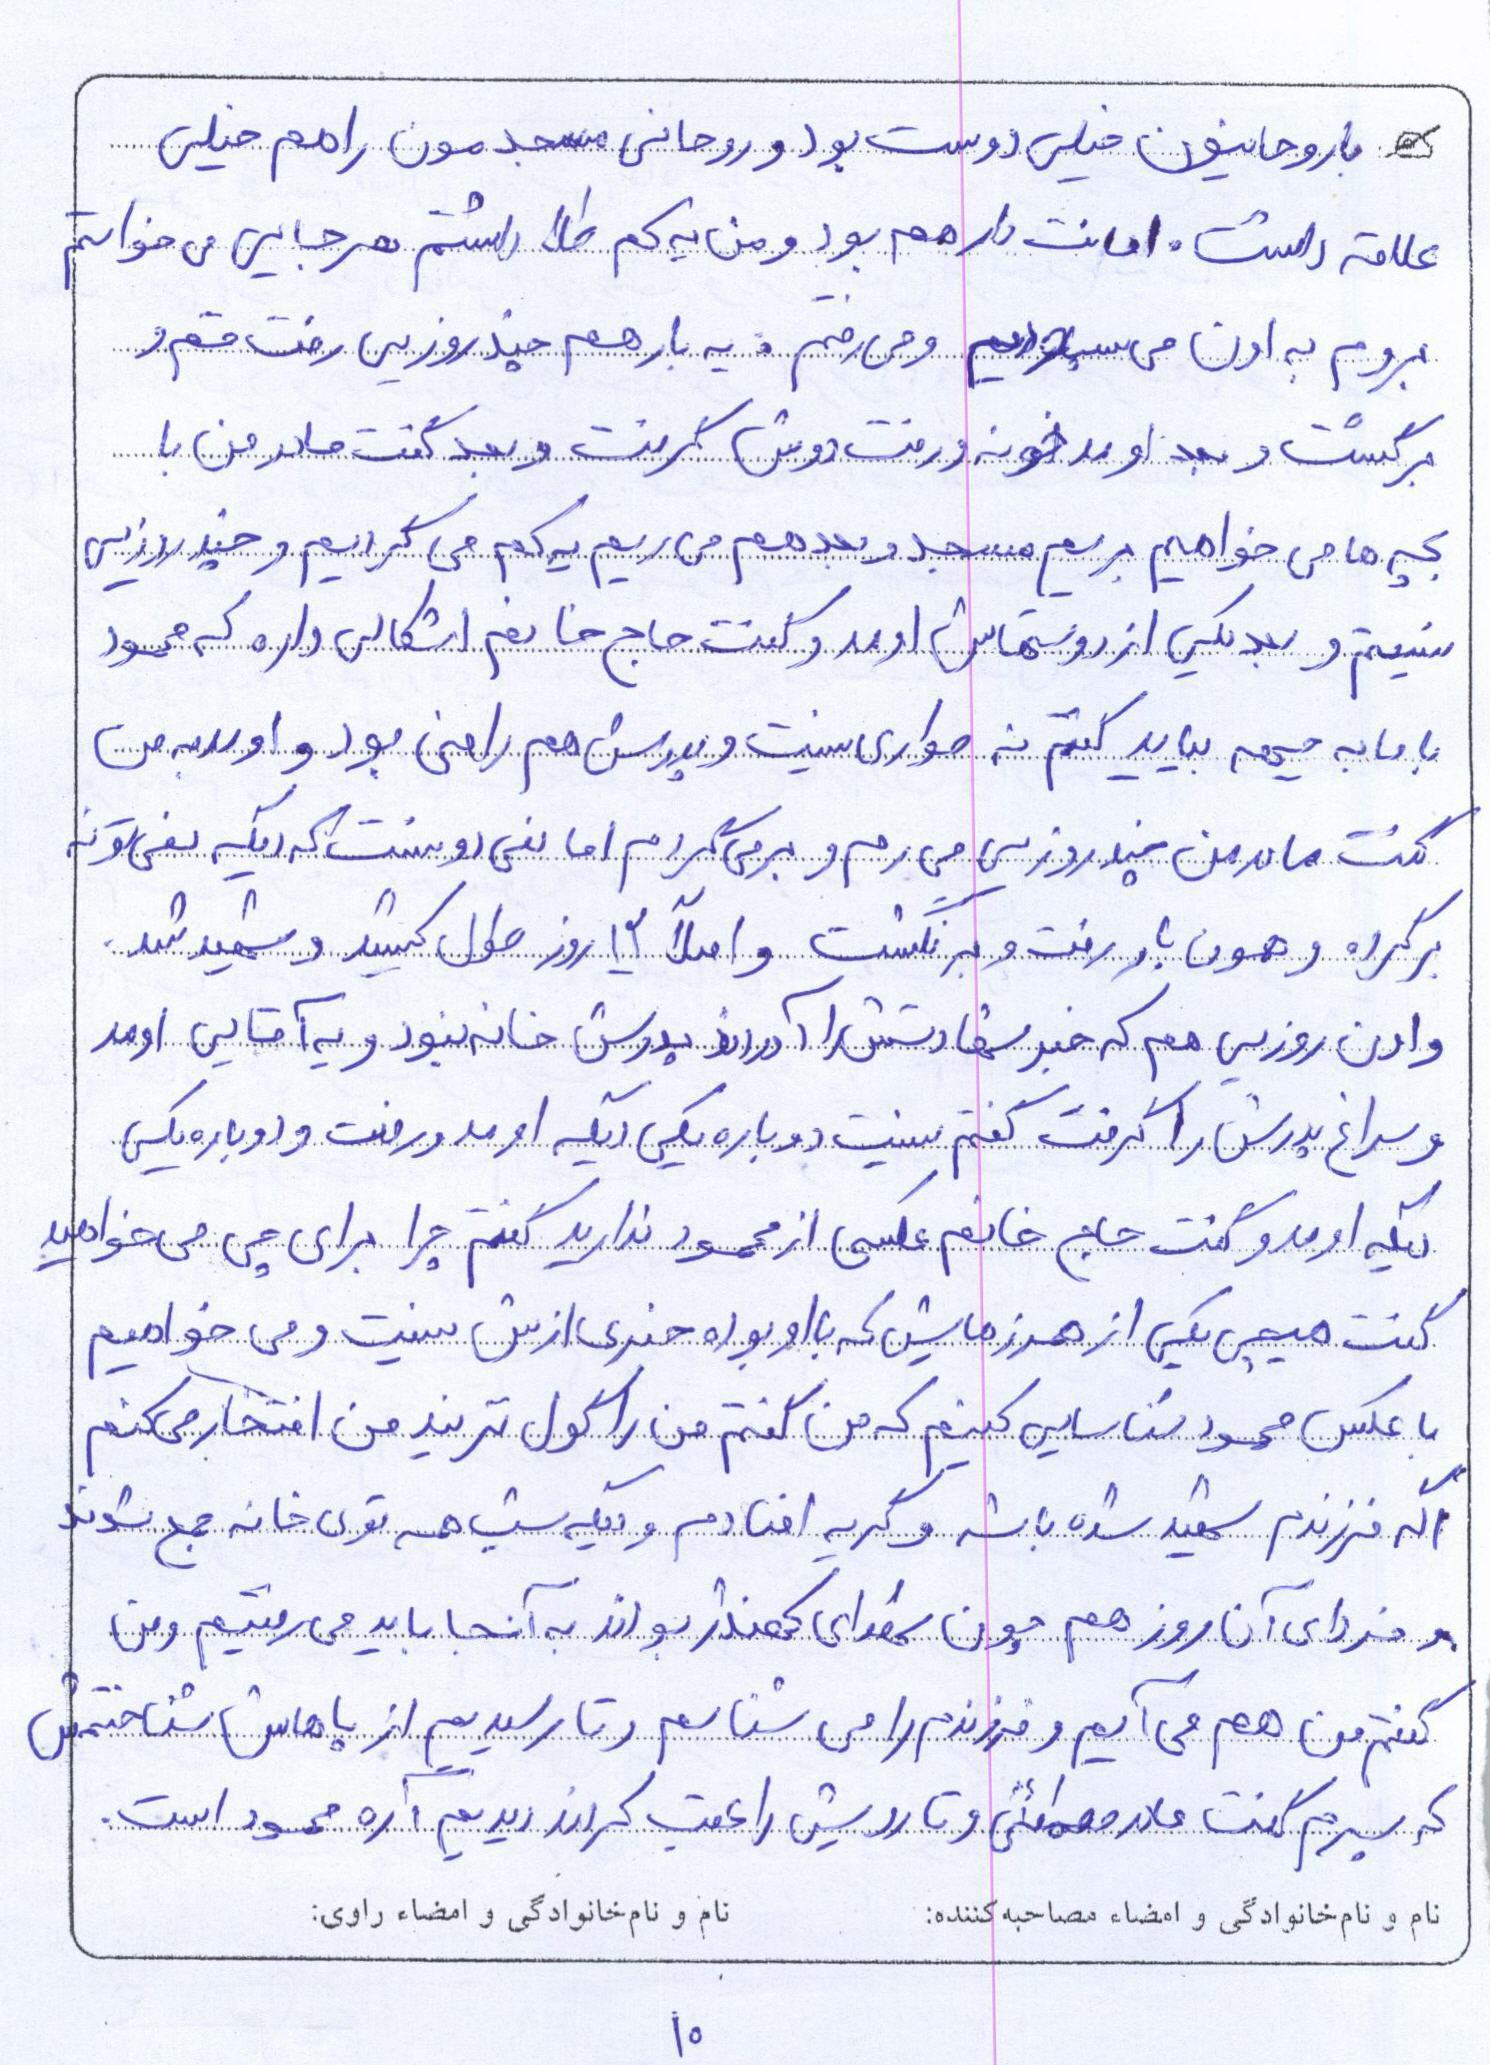 با روحانیون خیلی دوست بود و روحانی مسجدمون را هم خیلی
علاقه داشت. امانت دار هم بود و من یه کم طلا داشتم هر جایی می خواستم
بروم به اون می سپردیم و می رفتم. یه بار هم چند روزیی رفت قم و
برگشت و بعد اومد خونه و رفت دوش گرفت و بعد گفت مادر من با
بچه ها می خواهیم بریم مسجد و بعد هم می ریم یه کم می گردیم و چند روزیی
نیستم و بعد یکی از دوستهاش اومد و گفت حاج خانم اشکالی داره که محمود
با ما به جبهه بیاید گفتم نه مواردی نیست و پدرش هم راضی بود و اومد به من
گفت مادر من چند روزیی می رم و برمی گردم اما نمی دونست که دیگه نمی تونه
برگرده و همون بار رفت و برنگشت و اصلاً ۱۲ روز طول کشید و شهید شد.
و اون روزیی هم که خبر شهادتش را آوردند پدرش خانه نبود و یه آقایی اومد
و سراغ پدرش را گرفت گفتم نیست دوباره یکی دیگه اومد و رفت و دوباره یکی
دیگه اومد و گفت حاج خانم عکسی از محمود ندارید گفتم چرا برای چی می خواهید
گفت هیچی یکی از همرزمهایش که با او بوده خبری ازش نیست و می خواهیم
با عکس محمود شناسایی کنیم که من گفتم من را گول نزنید من افتخار می کنم
اگه فرزندم شهید شده باشه و گریه افتادم و دیگه شب همه توی خانه جمع شدند
و فردای آن روز هم چون شهدای کهندژ بودند به آنجا باید می رفتیم و من
گفتم من هم می آیم و فرزندم را می شناسم و تا رسیدیم از پاهاش شناختمش
که پسرم گفت مادر مطمئنی و تا رویش را عقب کردند دیدیم آره محمود است.
نام و نام‌خانوادگی و امضاء مصاحبه‌کننده: نام و نام‌خانوادگی و امضاء راوی:
۱۰